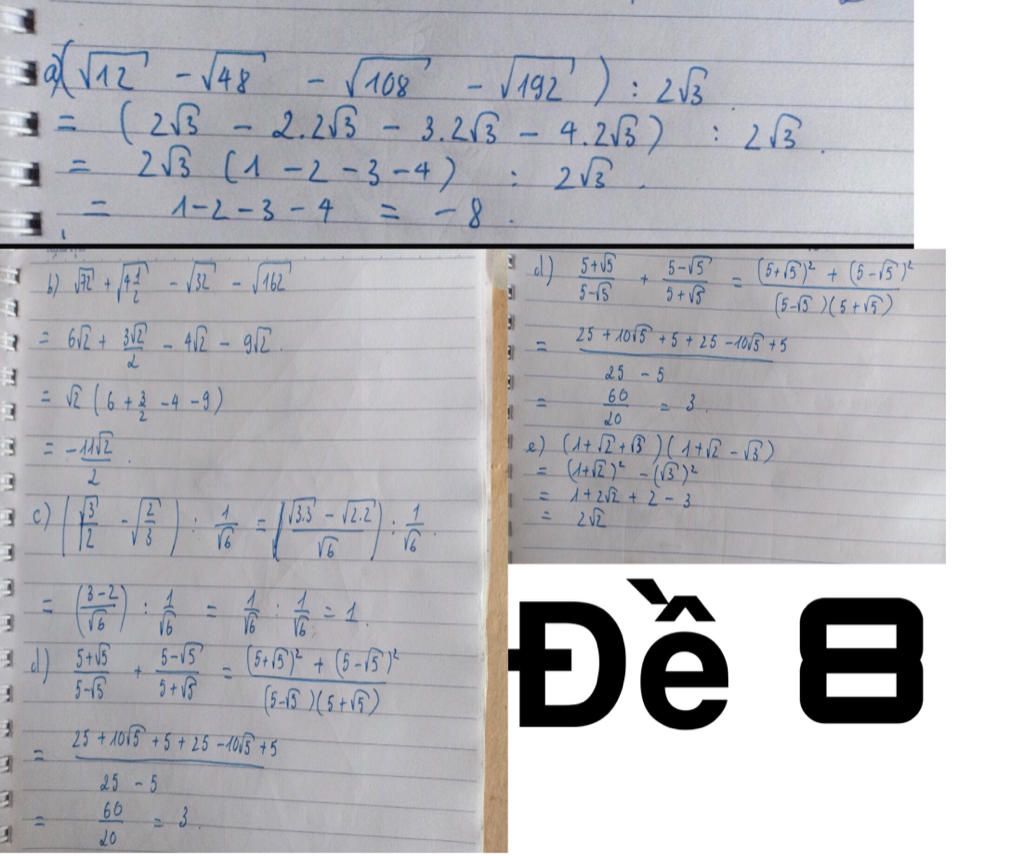 a) (√12 - √48 - √108 - √192) : 2√3
= (2√3 - 2.2√3 - 3.2√3 - 4.2√3) : 2√3.
= 2√3 (1 - 2 - 3 - 4) : 2√3.
= 1 - 2 - 3 - 4 = -8.
b) √72 + √(4 1/2) - √32 - √162
= 6√2 + 3√2/2 - 4√2 - 9√2.
= √2 (6 + 3/2 - 4 - 9)
= -11√2/2.
c) (√(3/2) - √(2/3)) : 1/√6 = ((√3.3 - √2.2)/√6) : 1/√6.
= ((3-2)/√6) : 1/√6 = 1/√6 : 1/√6 = 1.
d) (5+√5)/(5-√5) + (5-√5)/(5+√5) = ((5+√5)² + (5-√5)²)/((5-√5)(5+√5))
= (25 + 10√5 + 5 + 25 - 10√5 + 5)/(25 - 5)
= 60/20 = 3.
d) (5+√5)/(5-√5) + (5-√5)/(5+√5) = ((5+√5)² + (5-√5)²)/((5-√5)(5+√5))
= (25 + 10√5 + 5 + 25 - 10√5 + 5)/(25 - 5)
= 60/20 = 3.
e) (1+√2+√3)(1+√2-√3)
= (1+√2)² - (√3)²
= 1 + 2√2 + 2 - 3
= 2√2
Đề 8